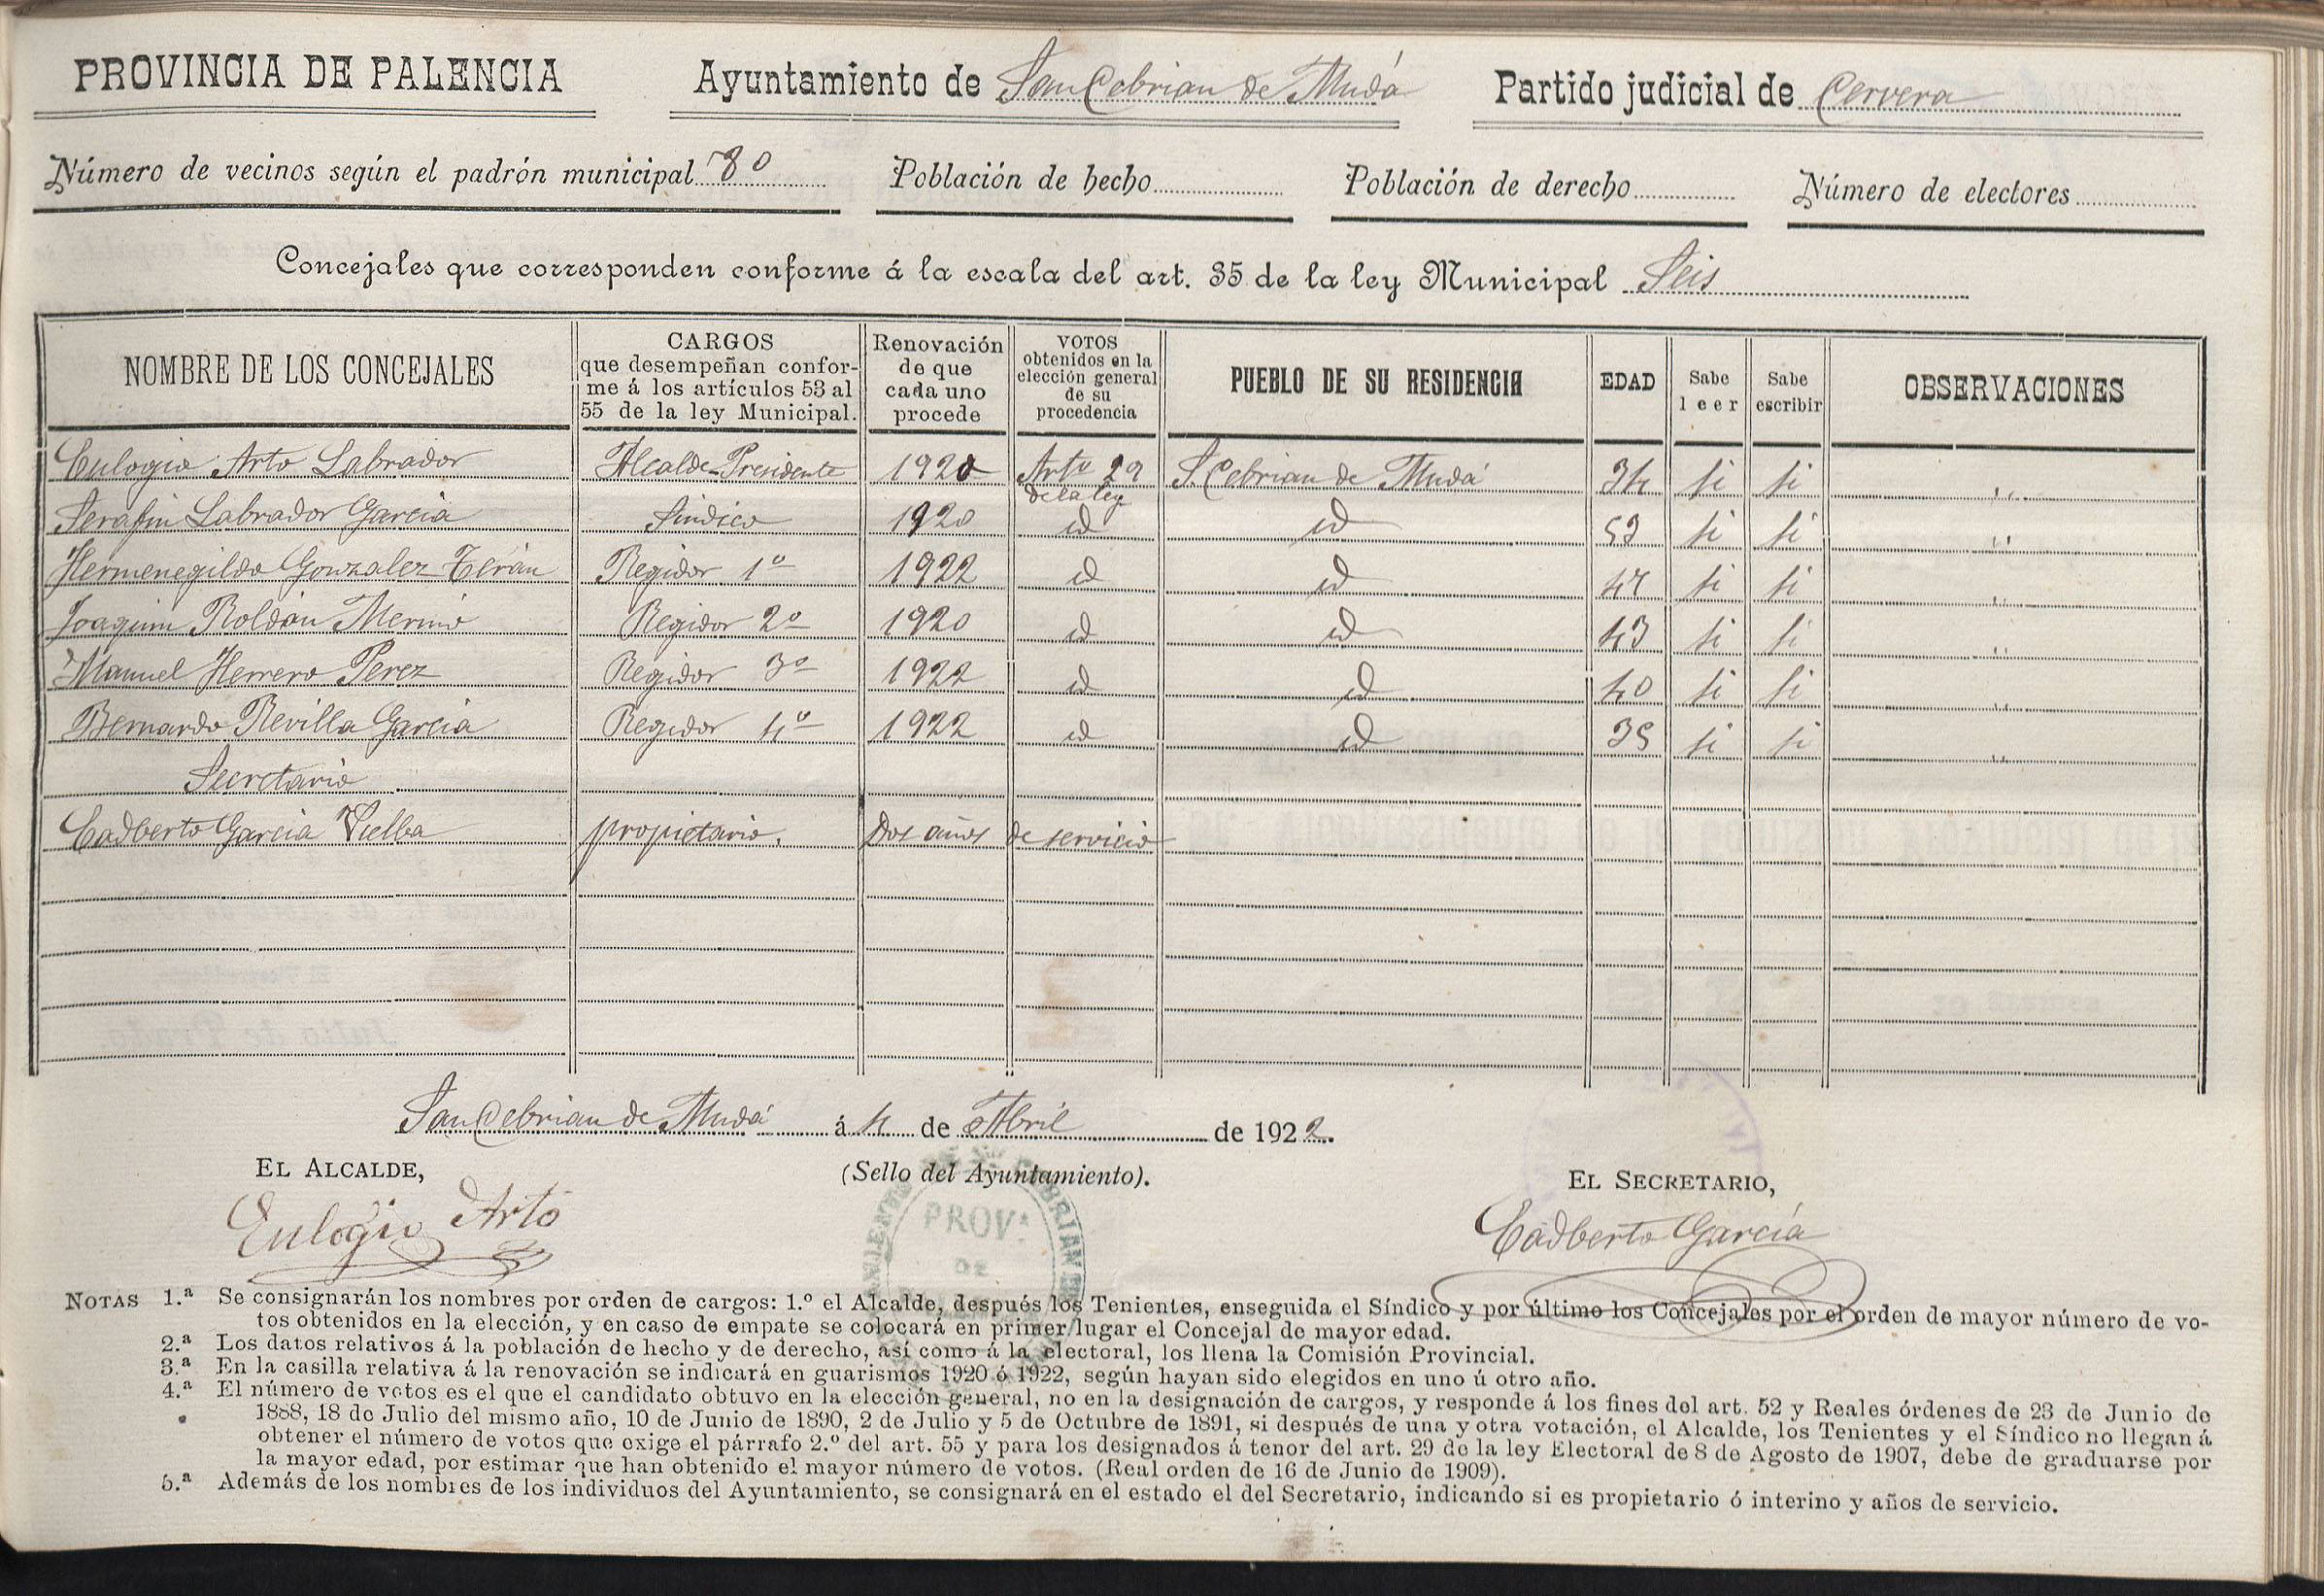 PROVINCIA DE PALENCIA Ayuntamiento de San Cebrian de Mudá Partido judicial de Cervera
Número de vecinos según el padrón municipal 80 Población de hecho Población de derecho Número de electores
Concejales que corresponden conforme á la escala del art. 35 de la ley Municipal Seis
NOMBRE DE LOS CONCEJALES CARGOS que desempeñan confor-me á los artículos 53 al 55 de la ley Municipal. Renovación de que cada uno procede VOTOS obtenidos en la elección general de su procedencia PUEBLO DE SU RESIDENCIA EDAD Sabe leer Sabe escribir OBSERVACIONES
Eulogio Arto Labrador Alcalde-Presidente 1920 Artº 29 de la ley S. Cebrian de Mudá 34 si si "
Serafin Labrador Garcia Sindico 1920 id id 53 si si "
Hermenegildo Gonzalez Terán Regidor 1º 1922 id id 47 si si "
Joaquin Roldán Merino Regidor 2º 1920 id id 43 si si "
Manuel Herrero Perez Regidor 3º 1922 id id 40 si si "
Bernardo Revilla Garcia Regidor 4º 1922 id id 35 si si "
Secretario
Eadberto Garcia Vielba propietario. Dos años de servicio
San Cebrian de Mudá á 4 de Abril de 1922.
EL ALCALDE, (Sello del Ayuntamiento). EL SECRETARIO,
Eulogio Arto Eadberto García
PROVª
DE
NOTAS 1.ª Se consignarán los nombres por orden de cargos: 1.º el Alcalde, después los Tenientes, enseguida el Síndico y por último los Concejales por el orden de mayor número de vo-
tos obtenidos en la elección, y en caso de empate se colocará en primer lugar el Concejal de mayor edad.
2.ª Los datos relativos á la población de hecho y de derecho, así como á la electoral, los llena la Comisión Provincial.
3.ª En la casilla relativa á la renovación se indicará en guarismos 1920 ó 1922, según hayan sido elegidos en uno ú otro año.
4.ª El número de votos es el que el candidato obtuvo en la elección general, no en la designación de cargos, y responde á los fines del art. 52 y Reales órdenes de 23 de Junio de
1888, 18 de Julio del mismo año, 10 de Junio de 1890, 2 de Julio y 5 de Octubre de 1891, si después de una y otra votación, el Alcalde, los Tenientes y el Síndico no llegan á
obtener el número de votos que exige el párrafo 2.º del art. 55 y para los designados á tenor del art. 29 de la ley Electoral de 8 de Agosto de 1907, debe de graduarse por
la mayor edad, por estimar que han obtenido el mayor número de votos. (Real orden de 16 de Junio de 1909).
5.ª Además de los nombres de los individuos del Ayuntamiento, se consignará en el estado el del Secretario, indicando si es propietario ó interino y años de servicio.